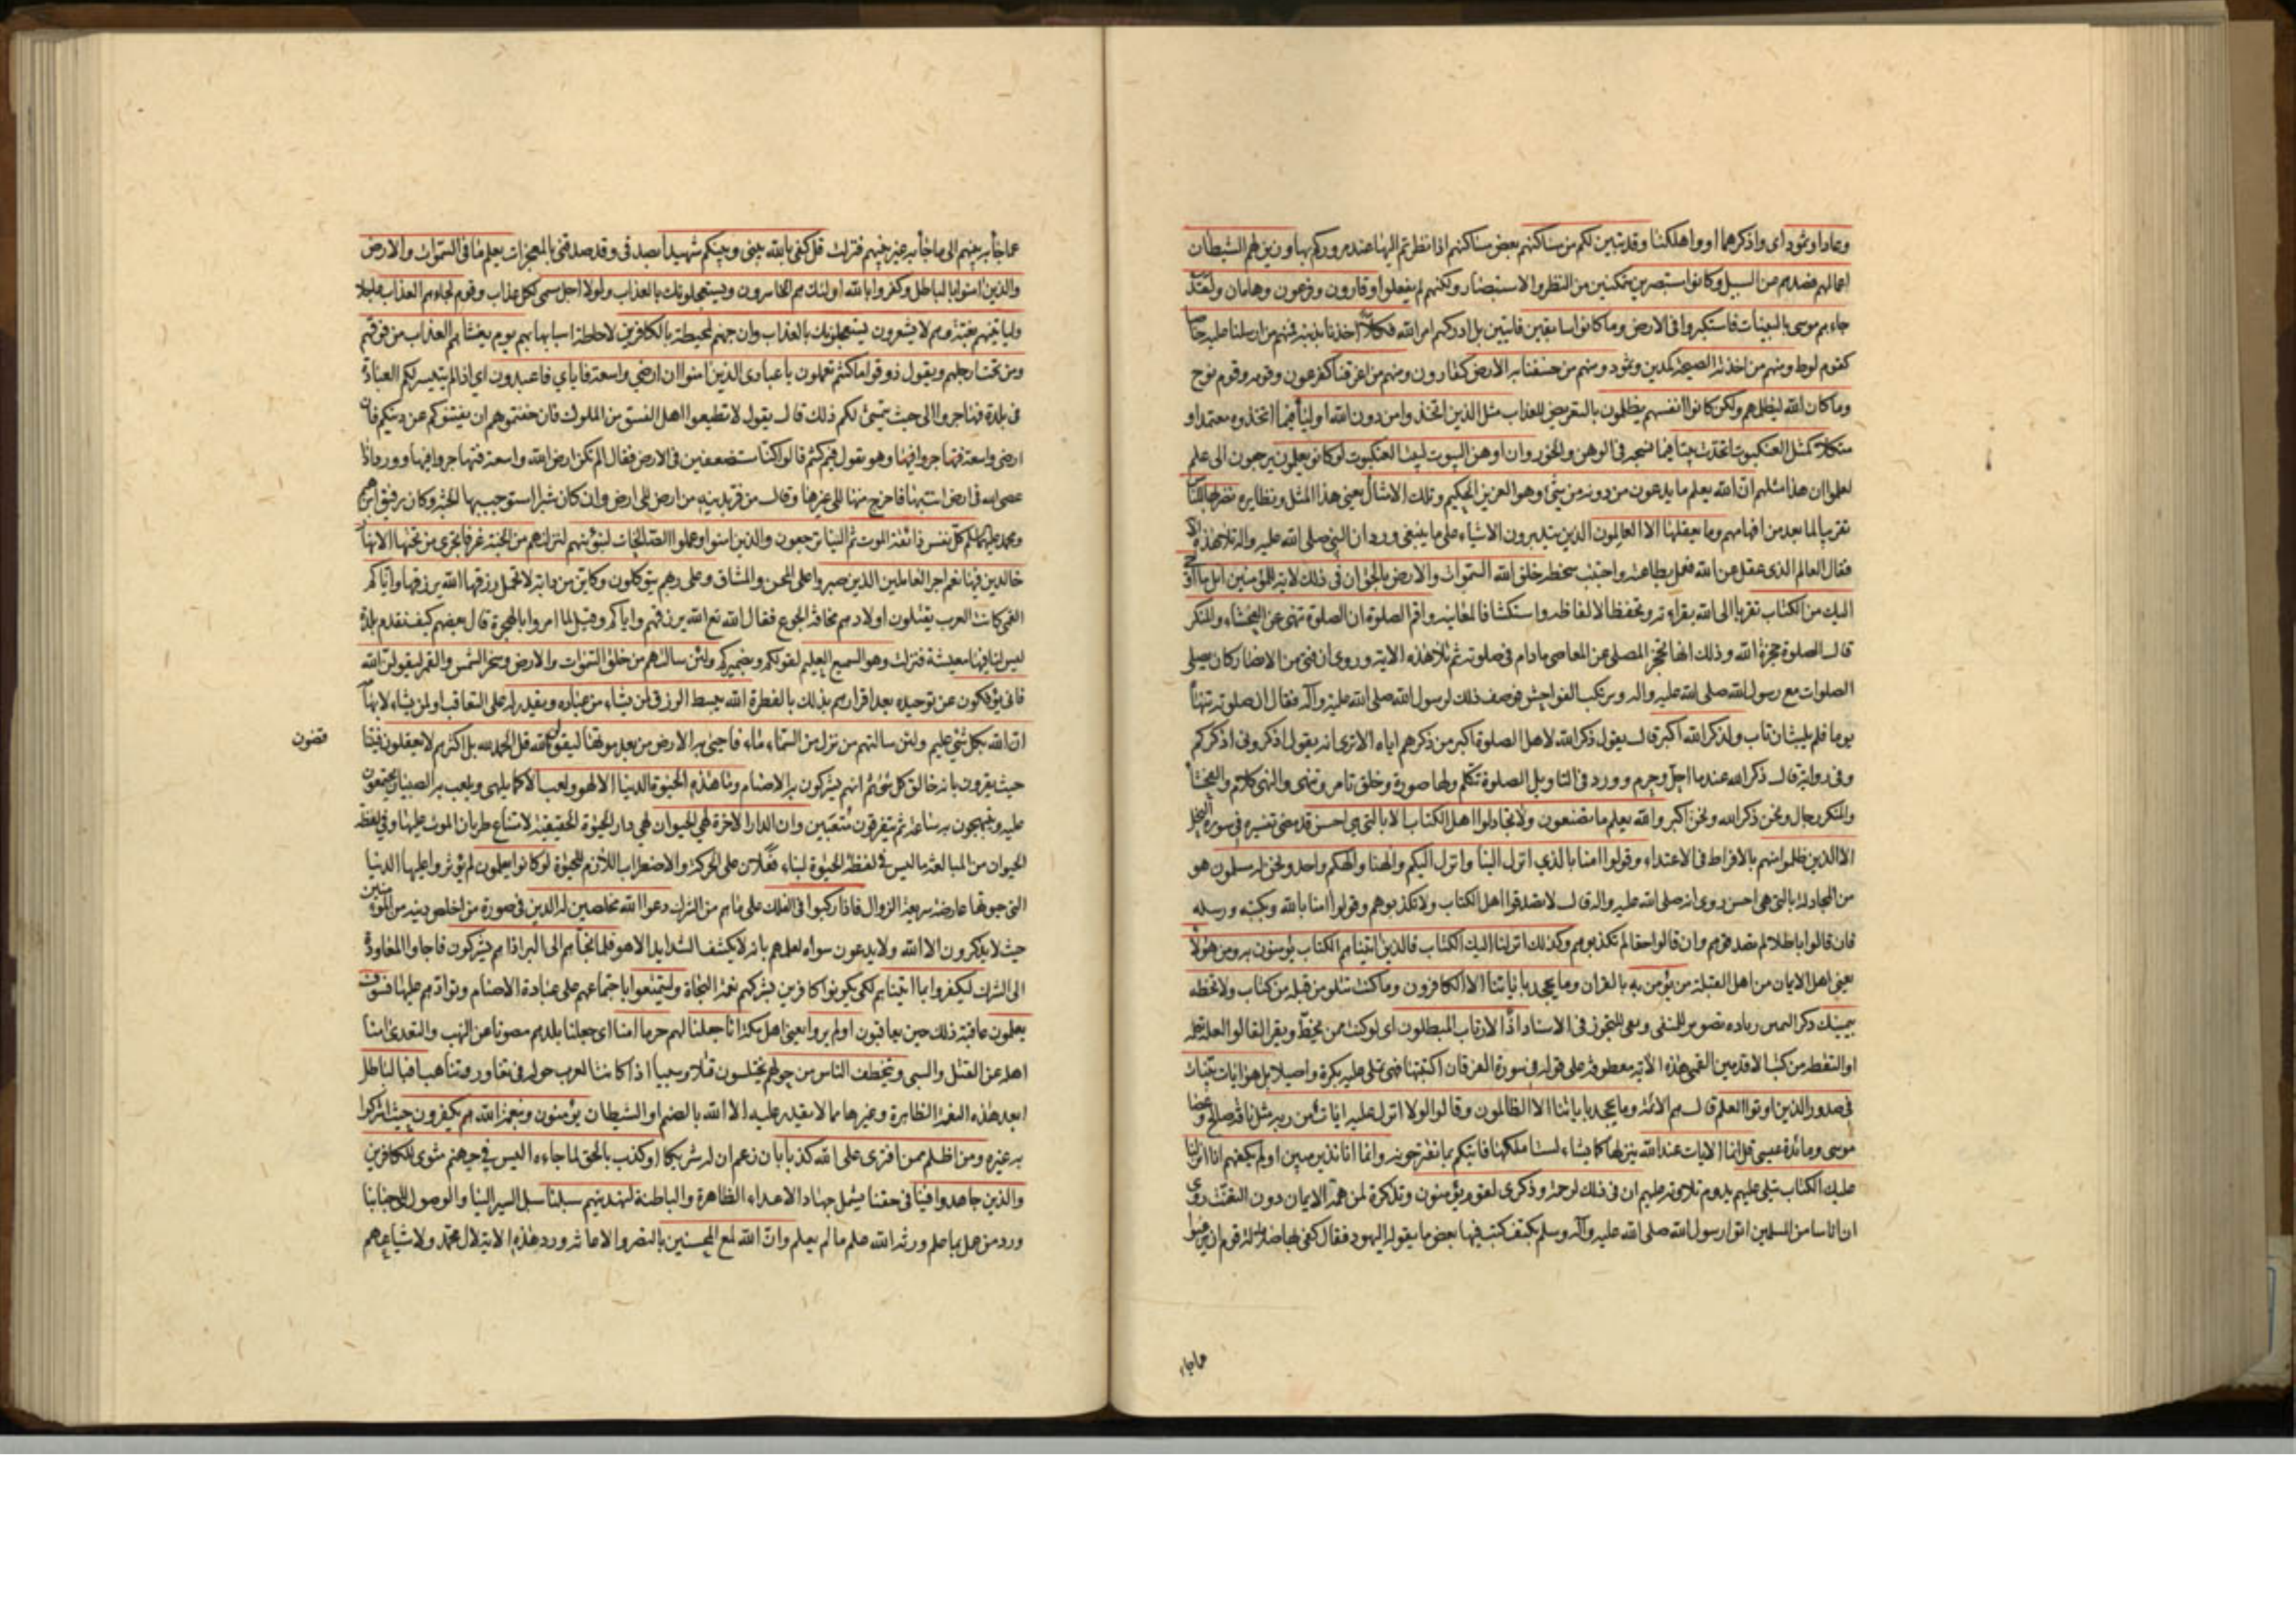 وعادا وثمود اى واذكرهما او واهلكنا وقد تبين لكم من مساكنهم بعض مساكنهم اذا نظرتم اليها عند مروركم بها وزين لهم الشيطان
اعمالهم فصدهم عن السبيل وكانوا مستبصرين متمكنين من النظر والاستبصار ولكنهم لم يفعلوا وقارون وفرعون وهامان ولقد
جاءهم موسى بالبينات فاستكبروا فى الارض وما كانوا سابقين فايتين بل ادركهم امر الله فكلا اخذنا بذنبه فمنهم من ارسلنا عليه حاصبا
كقوم لوط ومنهم من اخذته الصيحة كمدين وثمود ومنهم من خسفنا به الارض كقارون ومنهم من اغرقنا كفرعون وقومه وقوم نوح
وما كان الله ليظلمهم ولكن كانوا انفسهم يظلمون بالتعريض للعذاب مثل الذين اتخذوا من دون الله اولياء فيما اتخذوه معتمدا و
متكلا كمثل العنكبوت اتخذت بيتا فيما نسجه فى الوهن والخور وان اوهن البيوت لبيت العنكبوت لو كانوا يعلمون يرجعون الى علم
لعلموا ان هذا مثلهم ان الله يعلم ما يدعون من دونه من شئ وهو العزيز الحكيم وتلك الامثال يعنى هذا المثل ونظايره نضربها للناس
تقريبا لما بعد من افهامهم وما يعقلها الا العالمون الذين يتدبرون الاشياء على ما ينبغى ورد ان النبى صلى الله عليه واله تلا هذه الاية
فقال العالم الذى عقل عن الله فعمل بطاعته واجتنب سخطه خلق الله السموات والارض بالحق ان فى ذلك لاية للمؤمنين اتل ما اوحى
اليك من الكتاب تقربا الى الله بقراءته وتحفظا لالفاظه واستكشافا لمعانيه واقم الصلوة ان الصلوة تنهى عن الفحشاء والمنكر
قال الصلوة حجزة الله وذلك انها تحجز المصلى عن المعاصى مادام فى صلوته ثم تلا هذه الاية وروى ان فتى من الانصار كان يصلى
الصلوات مع رسول الله صلى الله عليه واله ويرتكب الفواحش فوصف ذلك لرسول الله صلى الله عليه وآله فقال ان صلوته تنهاه
يوما فلم يلبث ان تاب ولذكر الله اكبر قال يقول ذكر الله لاهل الصلوة اكبر من ذكرهم اياه الا ترى انه يقول اذكرونى اذكركم
وفى رواية قال ذكر الله عند ما احل وحرم وورد فى التاويل الصلوة تتكلم ولها صورة وخلق تامر وتنهى والنهى كلام والفحشاء
والمنكر رجال ونحن ذكر الله ونحن اكبر والله يعلم ما تصنعون ولا تجادلوا اهل الكتاب الا بالتى هى احسن قد مضى تفسيره فى سورة النحل
الا الذين ظلموا منهم بالافراط فى الاعتداء وقولوا امنا بالذي انزل الينا وانزل اليكم والهنا والهكم واحد ونحن له مسلمون هو
من المجادلة بالتى هى احسن روى انه صلى الله عليه واله قال لا تصدقوا اهل الكتاب ولا تكذبوهم وقولوا امنا بالله وبكتبه ورسله
فان قالوا باطلا لم تصدقوهم وان قالوا حقا لم تكذبوهم وكذلك انزلنا اليك الكتاب فالذين اتيناهم الكتاب يؤمنون به ومن هؤلاء
يعنى اهل الايمان من اهل القبلة من يؤمن به بالقران وما يجحد باياتنا الا الكافرون وما كنت تتلو من قبله من كتاب ولا تخطه
بيمينك ذكر اليمين زيادة تصوير للمنفى ونفى للتجوز فى الاسناد اذًا لارتاب المبطلون اى لو كنت ممن يخط ويقرا لقالوا لعله تعلمه
او التقطه من كتب الاقدمين القمى هذه الاية معطوفة على قوله فى سورة الفرقان اكتتبها فهى تملى عليه بكرة واصيلا بل هو ايات بينات
فى صدور الذين اوتوا العلم قال هم الائمة وما يجحد باياتنا الا الظالمون وقالوا لولا انزل عليه ايات من ربه مثل ناقة صالح وعصا
موسى ومائدة عيسى قل انما الايات عند الله ينزلها كما يشاء لست املكها فاتيكم بما تقترحونه وانما انا نذير مبين اولم يكفهم انا انزلنا
عليك الكتاب يتلى عليهم يدوم تلاوته عليهم ان فى ذلك لرحمة وذكرى لقوم يؤمنون وتذكرة لمن همه الايمان دون التعنت روى
ان اناسا من المسلمين اتوا رسول الله صلى الله عليه وآله وسلم بكتف كتب فيها بعض ما يقوله اليهود فقال كفى بها ضلالة قوم ان يرغبوا
عما جاء
عما جاء به نبيهم الى ما جاء به غير نبيهم فنزلت قل كفى بالله بينى وبينكم شهيدا بصدقى وقد صدقنى بالمعجزات يعلم ما فى السموات والارض
والذين امنوا بالباطل وكفروا بالله اولئك هم الخاسرون ويستعجلونك بالعذاب ولولا اجل مسمى لكل عذاب وقوم لجاءهم العذاب عاجلا
وليأتينهم بغتة وهم لا يشعرون يستعجلونك بالعذاب وان جهنم لمحيطة بالكافرين لاحاطة اسبابها بهم يوم يغشاهم العذاب من فوقهم
ومن تحت ارجلهم ويقول ذوقوا ما كنتم تعملون يا عبادى الذين امنوا ان ارضى واسعة فاياي فاعبدون اى اذا لم يتيسر لكم العبادة
فى بلدة فهاجروا الى حيث يتمشى لكم ذلك قال يقول لا تطيعوا اهل الفسق من الملوك فان خفتموهم ان يفتنوكم عن دينكم فان
ارضى واسعة فهاجروا فيها وهو يقول فيم كنتم قالوا كنا مستضعفين فى الارض فقال الم تكن ارض الله واسعة فتهاجروا فيها وورد اذا
عصى الله فى ارض انت بها فاخرج منها الى غيرها وقال من فر بدينه من ارض الى ارض وان كان شبرا استوجب بها الجنة وكان رفيق ابرهيم
ومحمد عليهما السلم كل نفس ذائقة الموت ثم الينا ترجعون والذين امنوا وعملوا الصالحات لنبوئنهم لننزلنهم من الجنة غرفا تجرى من تحتها الانهار
خالدين فيها نعم اجر العاملين الذين صبروا على المحن والمشاق وعلى ربهم يتوكلون وكاين من دابة لا تحمل رزقها الله يرزقها واياكم
القمى كانت العرب يقتلون اولادهم مخافة الجوع فقال الله تع الله يرزقهم واياكم وقيل لما امروا بالهجرة قال بعضهم كيف نقدم بلدة
ليس لنا فيها معيشة فنزلت وهو السميع العليم لقولكم وضميركم ولئن سالتهم من خلق السموات والارض وسخر الشمس والقمر ليقولن الله
فانى يؤفكون عن توحيده بعد اقرارهم بذلك بالفطرة الله يبسط الرزق لمن يشاء من عباده ويقدر له على التعاقب او لمن يشاء لابهامه
ان الله بكل شئ عليم ولئن سالتهم من نزل من السماء ماء فاحيى به الارض من بعد موتها ليقولن الله قل الحمد لله بل اكثرهم لا يعقلون فيتنا
قضون
حيث يقرون بانه خالق كل شئ ثم انهم يشركون به الاصنام وما هذه الحيوة الدنيا الا لهو ولعب الا كما يلهى ويلعب به الصبيان يجتمعون
عليه ويبتهجون به ساعة ثم يتفرقون متعبين وان الدار الاخرة لهى الحيوان لهى دار الحيوة الحقيقية لامتناع طريان الموت عليها وفى لفظة
الحيوان من المبالغة ما ليس فى لفظة الحيوة لبناء فعلان على الحركة والاضطراب اللازم للحيوة لو كانوا يعلمون لم يؤثروا عليها الدنيا
التى حيوتها عارضة سريعة الزوال فاذا ركبوا فى الفلك على ما هم من الشرك دعوا الله مخلصين له الدين فى صورة من اخلص دينه من المؤمنين
حيث لا يذكرون الا الله ولا يدعون سواه لعلمهم بانه لا يكشف الشدايد الا هو فلما نجاهم الى البر اذا هم يشركون فاجاوا المعاودة
الى الشرك ليكفروا بما اتيناهم لكى يكونوا كافرين بشركهم نعمة النجاة وليتمتعوا باجتماعهم على عبادة الاصنام وتوادهم عليها فسوف
يعلمون عاقبة ذلك حين يعاقبون اولم يروا يعنى اهل مكة انا جعلنا لهم حرما امنا اى جعلنا بلدهم مصونا عن النهب والتعدى امنا
اهله عن القتل والسبى ويتخطف الناس من حولهم يختلسون قتلا وسبيا اذا كانت العرب حوله فى تغاور وتناهب افبالباطل
ابعد هذه النعمة الظاهرة وغيرها مما لا يقدر عليه الا الله بالصنم او الشيطان يؤمنون وبنعمة الله هم يكفرون حيث اشركوا
به غيره ومن اظلم ممن افترى على الله كذبا بان زعم ان له شريكا او كذب بالحق لما جاءه اليس فى جهنم مثوى للكافرين
والذين جاهدوا فينا فى حقنا يشمل جهاد الاعداء الظاهرة والباطنة لنهدينهم سبلنا سبل السير الينا والوصول الى جنابنا
ورد من عمل بما علم ورثه الله علم ما لم يعلم وان الله لمع المحسنين بالنصر والاعانة ورد هذه الاية لال محمد ولاشياعهم